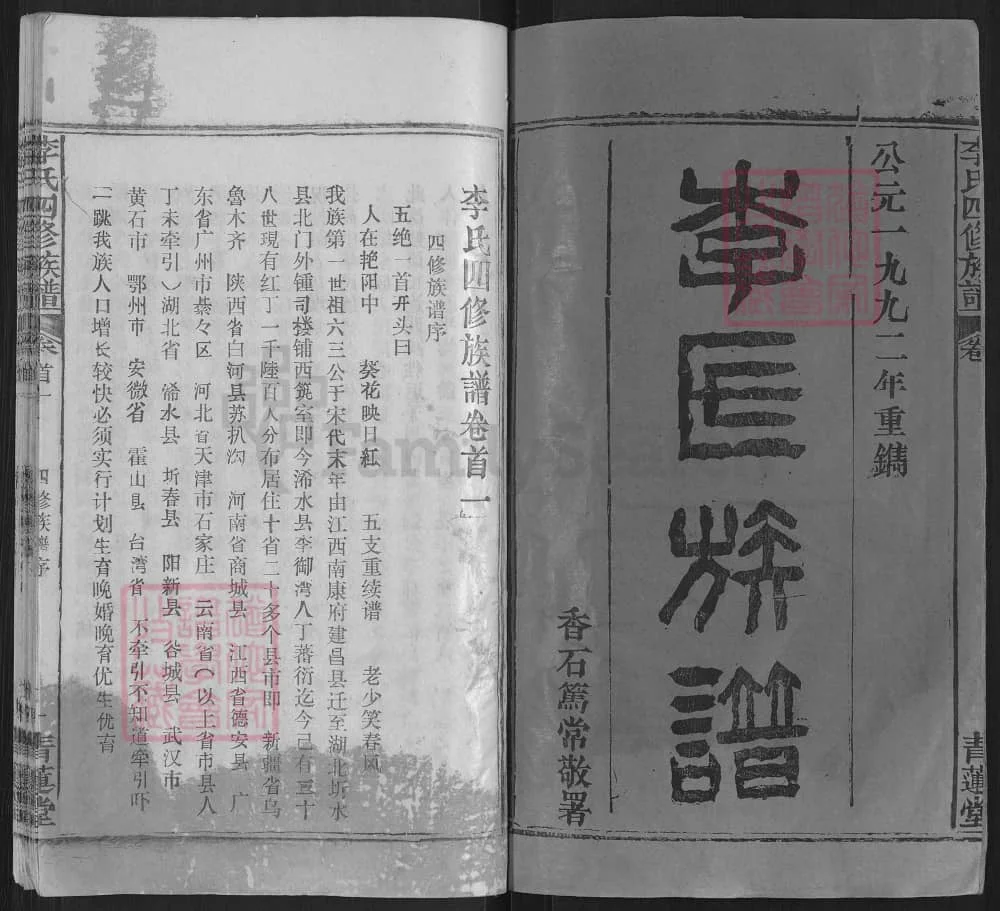 公元一九九二年重鐫
李氏族譜
香石篤常敬署
李氏四修族譜
卷
青蓮堂
李氏四修族譜卷首一
四修族谱序
五绝一首开头曰
人在艳阳中 葵花映日紅 五支重续谱 老少笑春风
我族第一世祖六三公于宋代末年由江西南康府建昌县迁至湖北圻水
县北门外锺司楼铺西筑室即今浠水县李御湾人丁蕃衍迄今已有三十
八世現有红丁一千陸百人分布居住十省二十多个县市即 新疆省乌
魯木齐 陕西省白河县苏扒沟 河南省商城县 江西省德安县 广
东省广州市綦々区 河北省天津市石家庄 云南省（以上省市县人
丁未牵引）湖北省 浠水县 圻春县 阳新县 谷城县 武汉市
黄石市 鄂州市 安徽省 霍山县 台湾省 不牵引不知道牵引吓
二跳我族人口增长较快必须实行计划生育晚婚晚育优生优育
李氏四修族譜
卷首一
四修族谱序
一
青蓮堂